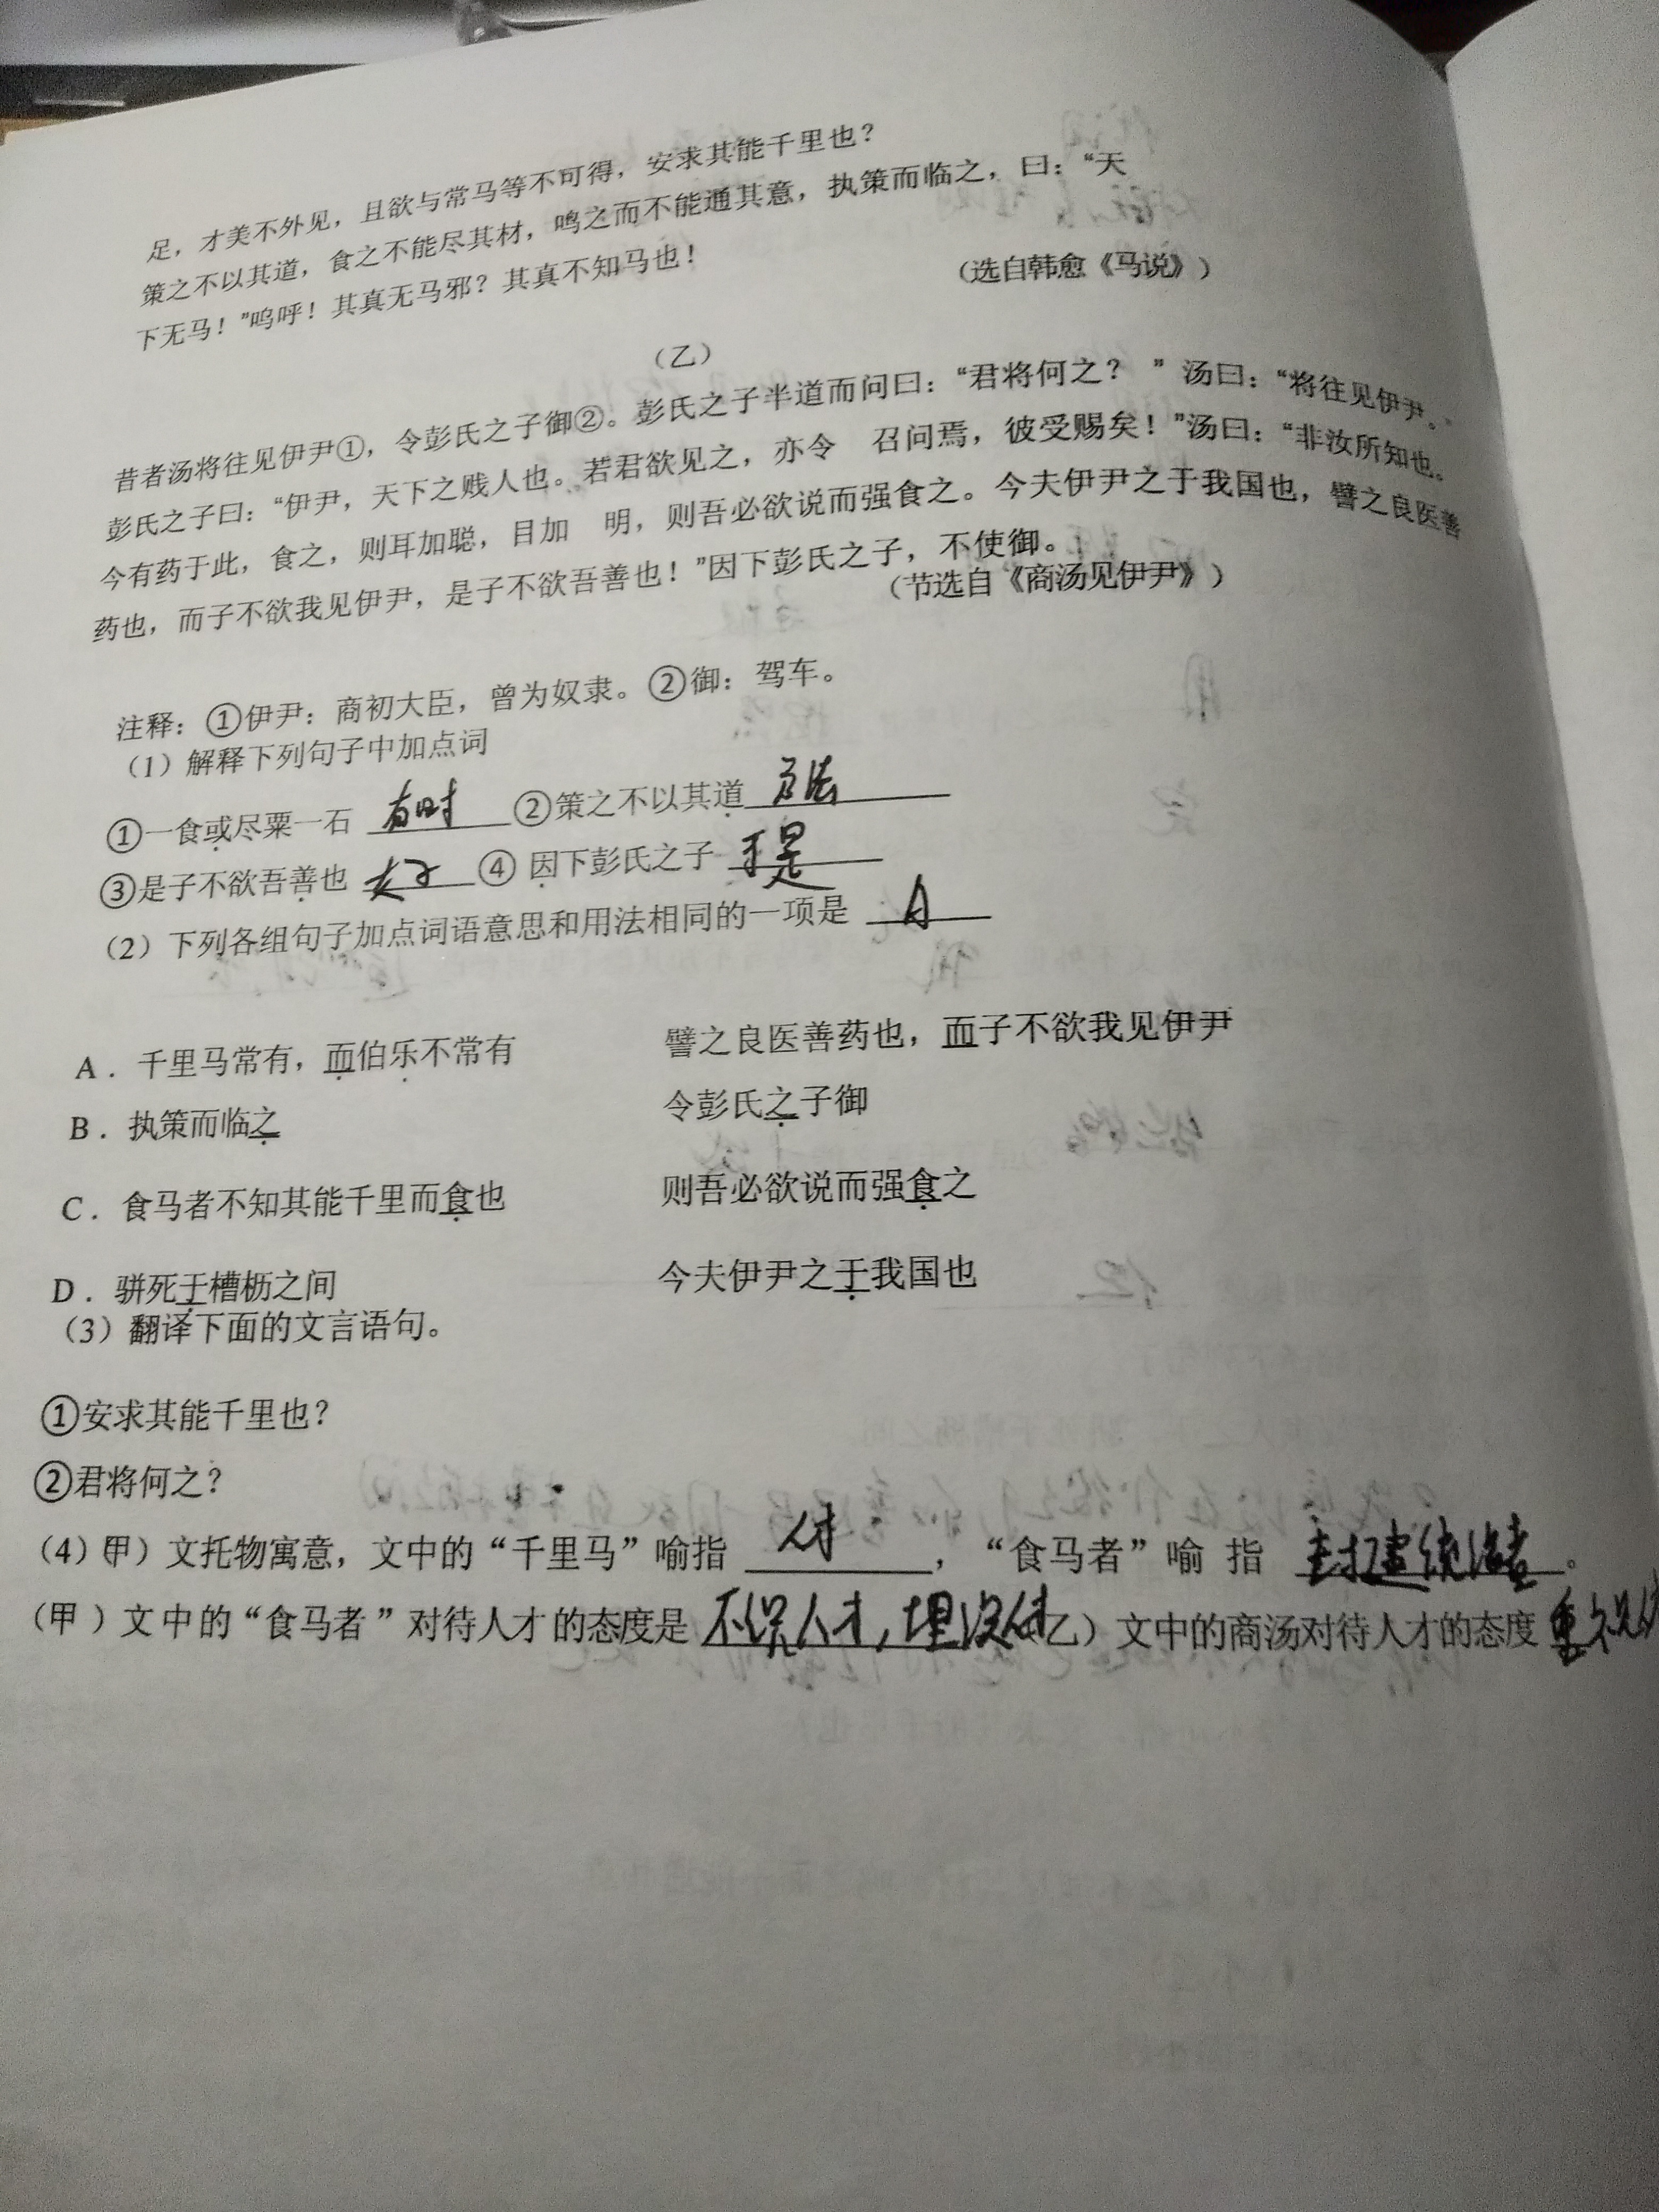 足，才美不外见，且欲与常马等不可得，安求其能千里也？
策之不以其道，食之不能尽其材，鸣之而不能通其意，执策而临之，曰：“天
下无马！”呜呼！其真无马邪？其真不知马也！
（选自韩愈《马说》）
（乙）
昔者汤将往见伊尹①，令彭氏之子御②。彭氏之子半道而问曰：“君将何之？ ”汤曰：“将往见伊尹。”
彭氏之子曰：“伊尹，天下之贱人也。若君欲见之，亦令 召问焉，彼受赐矣！”汤曰：“非汝所知也。
今有药于此，食之，则耳加聪，目加 明，则吾必欲说而强食之。今夫伊尹之于我国也，譬之良医善
药也，而子不欲我见伊尹，是子不欲吾善也！”因下彭氏之子，不使御。
（节选自《商汤见伊尹》）
注释：①伊尹：商初大臣，曾为奴隶。②御：驾车。
（1）解释下列句子中加点词
①一食或尽粟一石 有时 ②策之不以其道 方法
③是子不欲吾善也 ④ 因下彭氏之子 于是
（2）下列各组句子加点词语意思和用法相同的一项是 A
A．千里马常有，而伯乐不常有 譬之良医善药也，而子不欲我见伊尹
B．执策而临之 令彭氏之子御
C．食马者不知其能千里而食也 则吾必欲说而强食之
D．骈死于槽枥之间 今夫伊尹之于我国也
（3）翻译下面的文言语句。
①安求其能千里也？
②君将何之？
（4）（甲）文托物寓意，文中的“千里马”喻指 人才，“食马者”喻 指 封建统治者。
（甲）文中的“食马者”对待人才的态度是 不识人才，埋没 乙）文中的商汤对待人才的态度